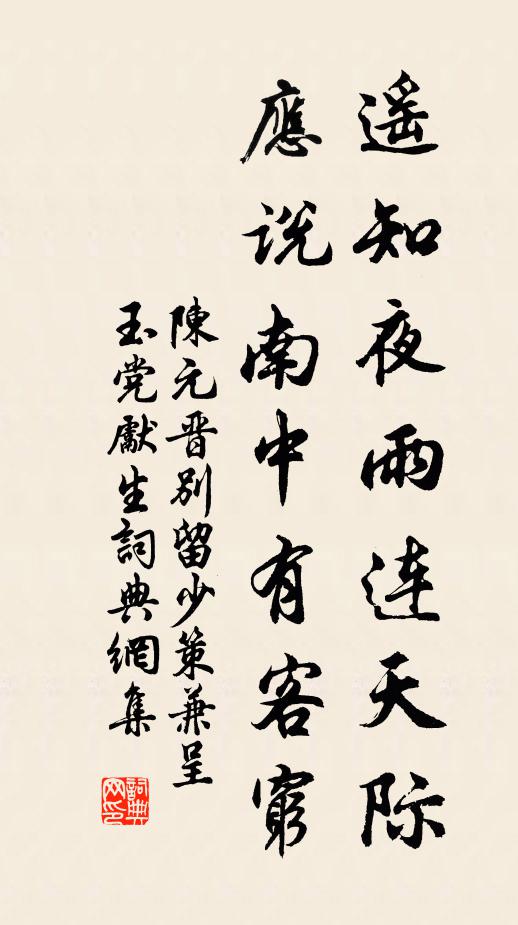 遥知夜雨连天际
應説南中有客窮
陳元晋别留少策兼呈
玉党獻生詞典網集
詞典网印